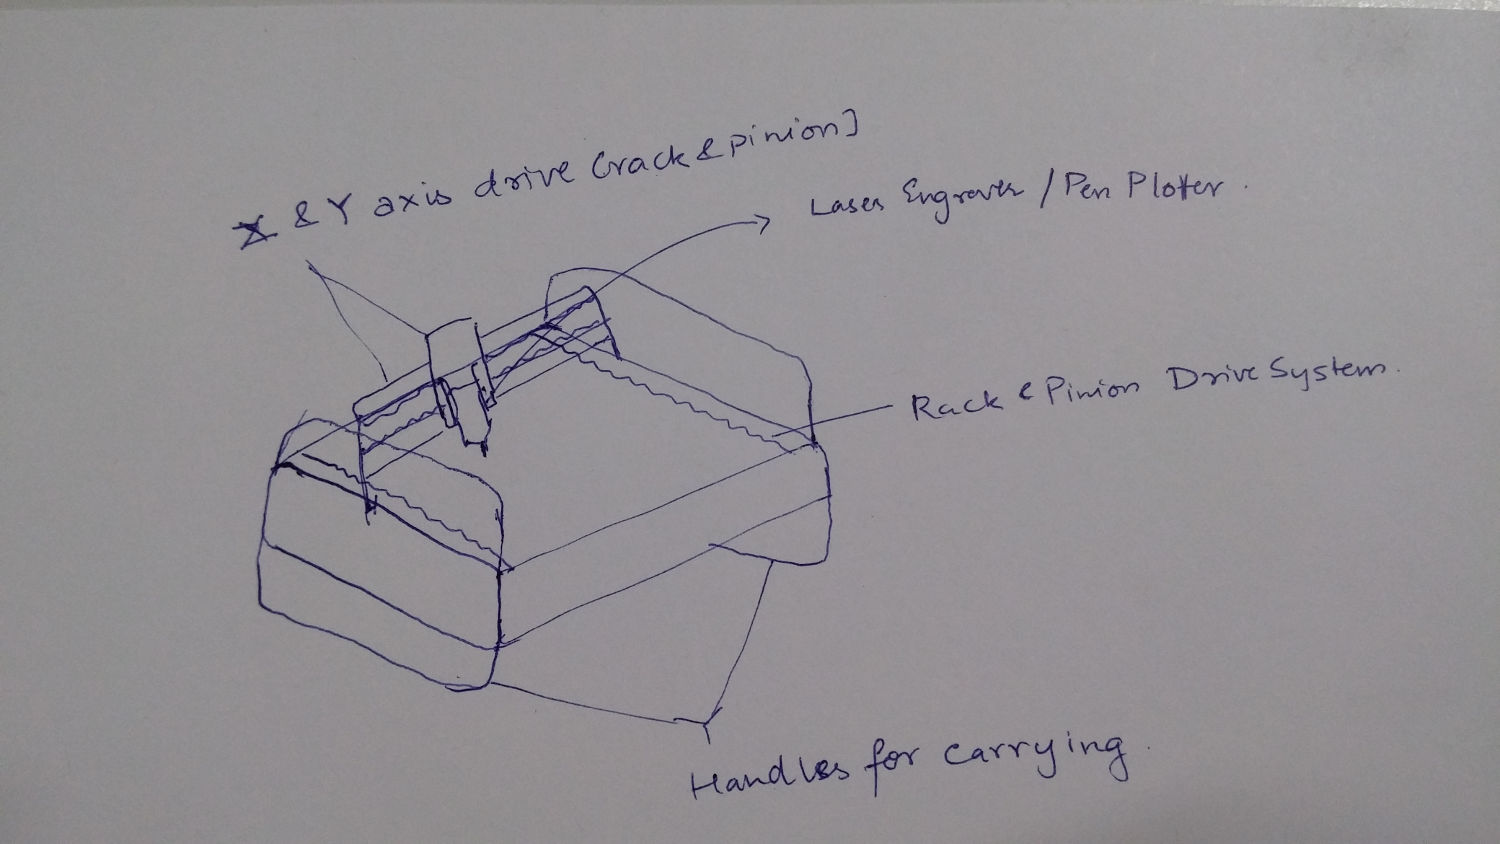 X & Y axis drive (rack & pinion]
Laser Engraver / Pen Plotter.
Rack & Pinion Drive System.
Handles for carrying.